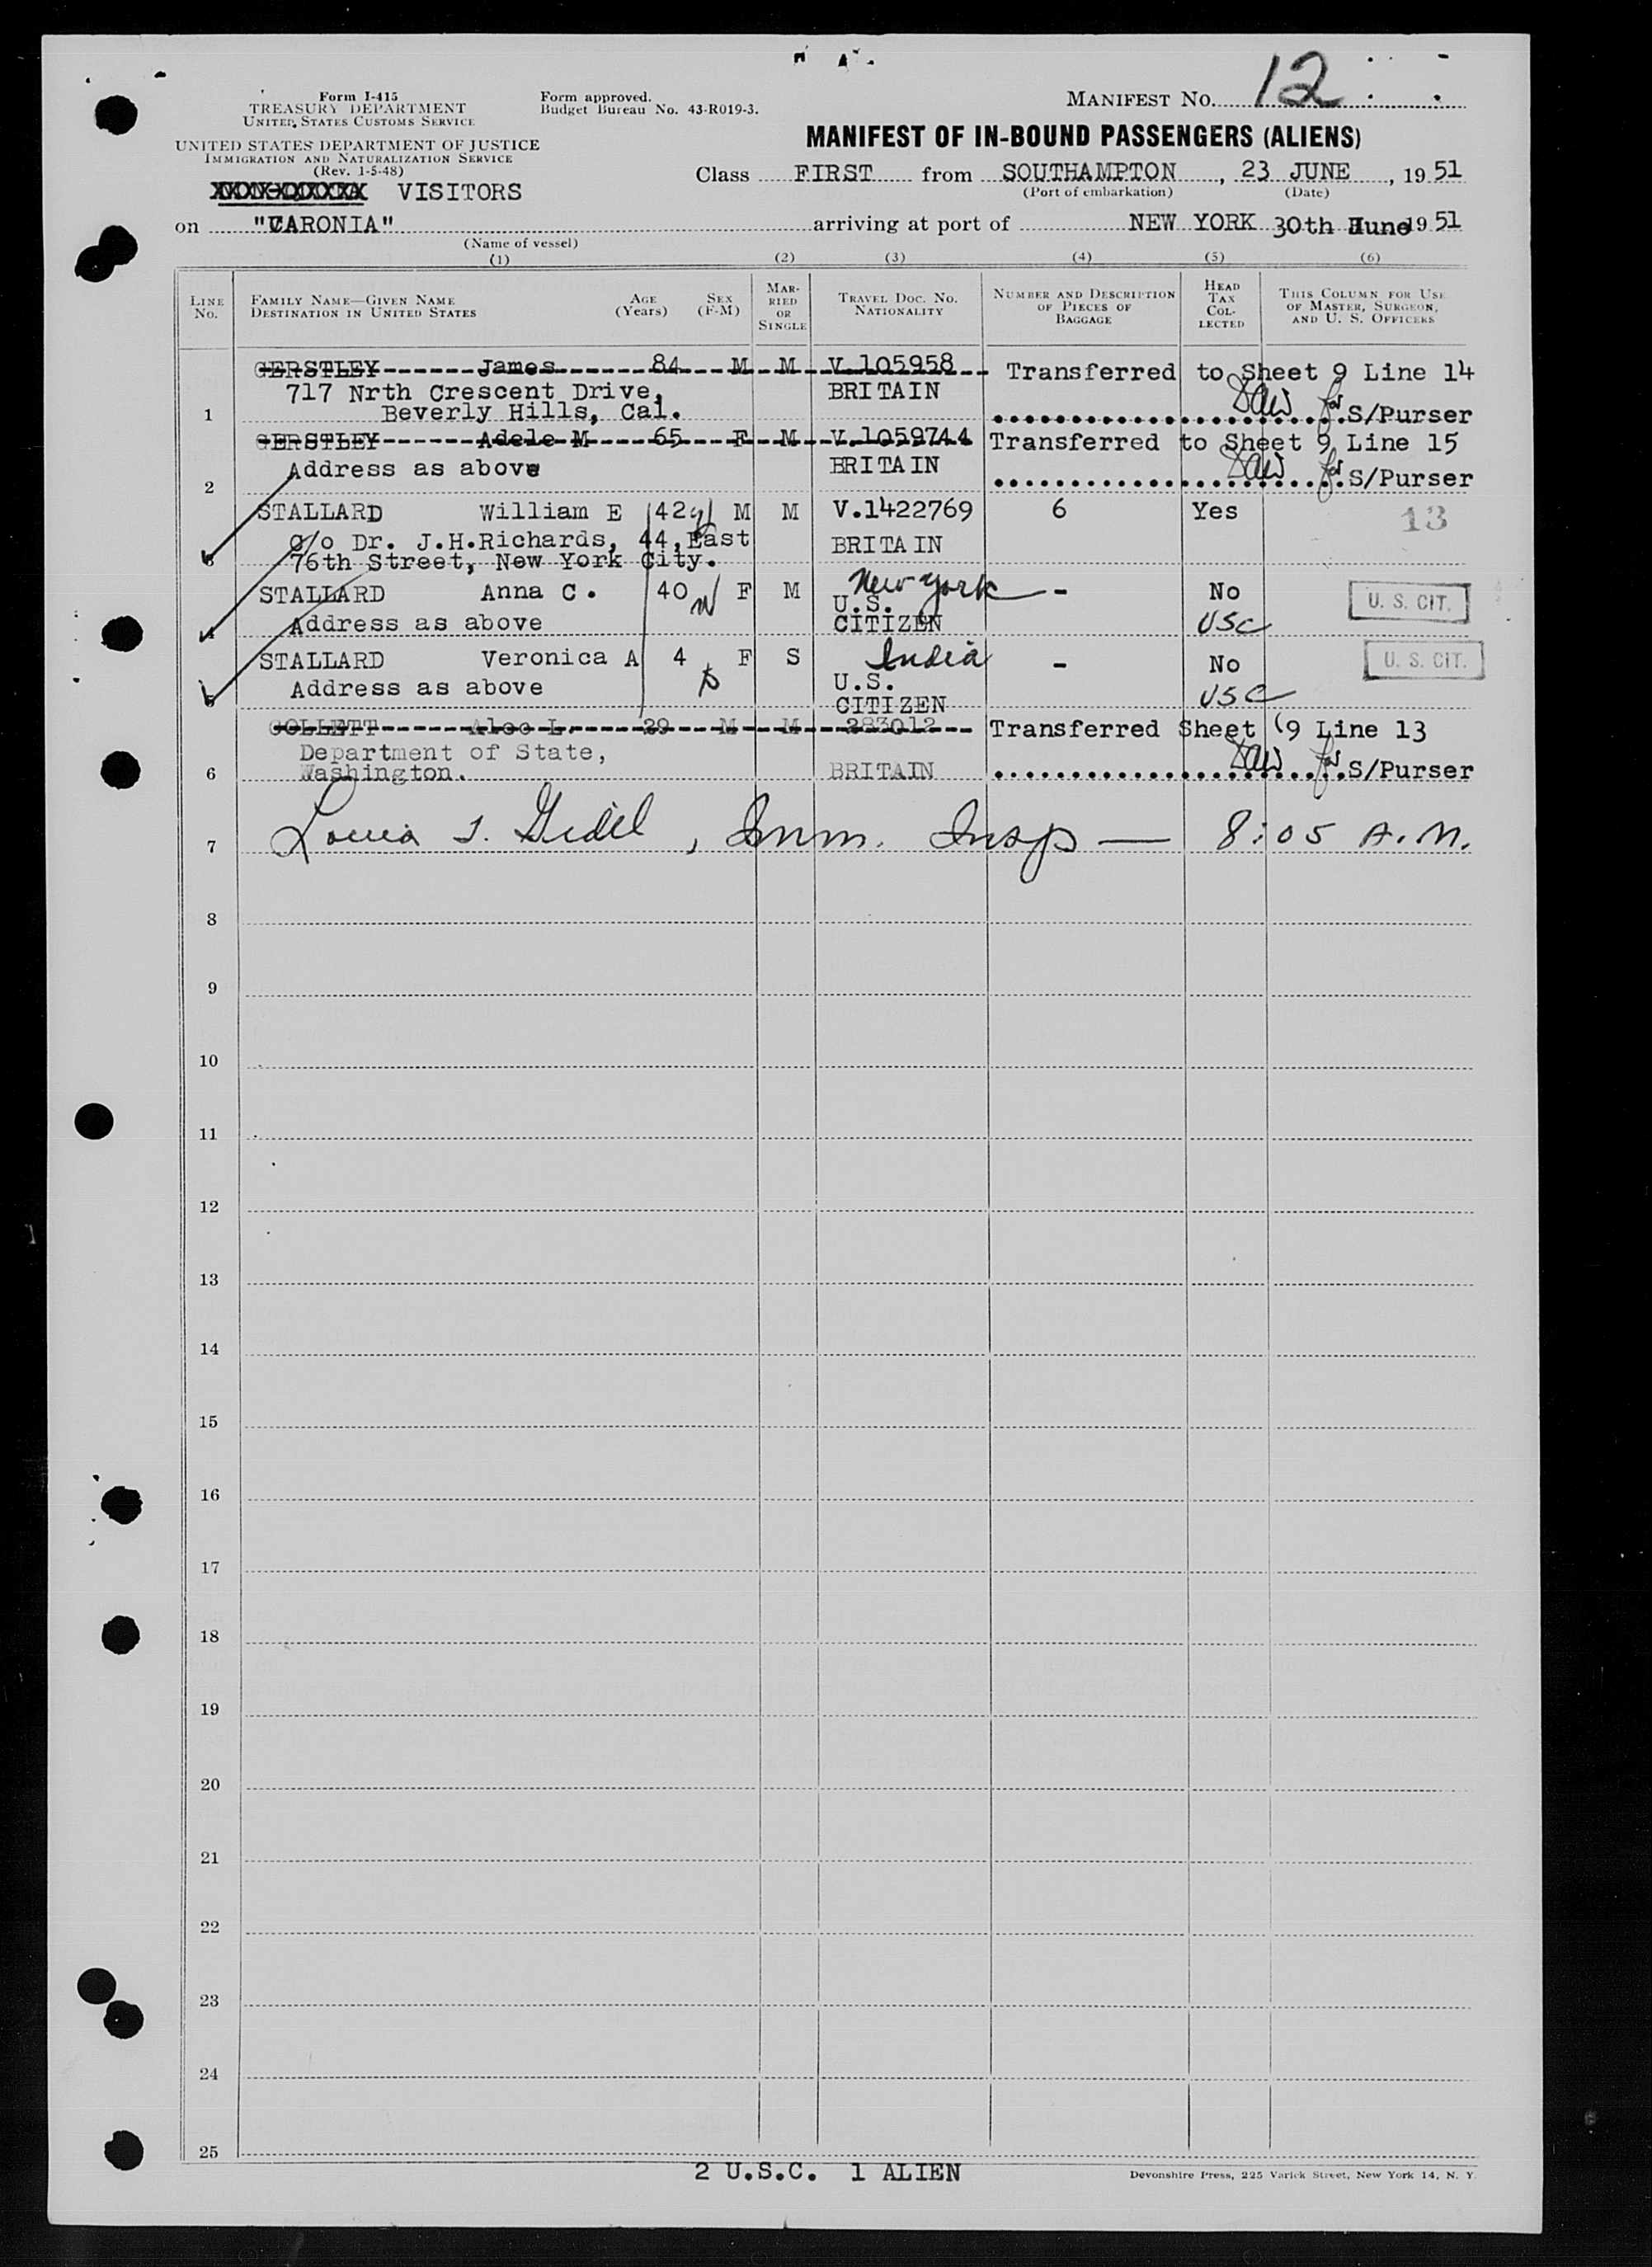 Form I-415
TREASURY DEPARTMENT
UNITED STATES CUSTOMS SERVICE
UNITED STATES DEPARTMENT OF JUSTICE
IMMIGRATION AND NATURALIZATION SERVICE
(Rev. 1-5-48)
Form approved.
Budget Bureau No. 43-R019-3.
MANIFEST NO. 12
MANIFEST OF IN-BOUND PASSENGERS (ALIENS)
Class FIRST from SOUTHAMPTON, 23 JUNE, 1951
(Port of embarkation) (Date)
VISITORS
on "CARONIA" arriving at port of NEW YORK 30th June 1951
(Name of vessel)
(1) (2) (3) (4) (5) (6)
LINE NO. FAMILY NAME—GIVEN NAME DESTINATION IN UNITED STATES AGE (Years) SEX (F-M) MARRIED OR SINGLE TRAVEL DOC. NO. NATIONALITY NUMBER AND DESCRIPTION OF PIECES OF BAGGAGE HEAD TAX COLLECTED THIS COLUMN FOR USE OF MASTER, SURGEON, AND U. S. OFFICERS
GERSTLEY James 84 M M V.105958 Transferred to Sheet 9 Line 14
717 Nrth Crescent Drive, BRITAIN
1 Beverly Hills, Cal. for S/Purser
GERSTLEY Adele M 65 F M V.1059744 Transferred to Sheet 9 Line 15
Address as above BRITAIN
2 for S/Purser
STALLARD William E 42 M M V.1422769 6 Yes 13
c/o Dr. J.H.Richards, 44,East BRITAIN
3 76th Street, New York City.
STALLARD Anna C. 40 F M New York - No U. S. CIT.
U.S.
4 Address as above CITIZEN USC
STALLARD Veronica A 4 F S India - No U. S. CIT.
Address as above U.S.
5 CITIZEN USC
COLLETT Alec L. 29 M M 283012 Transferred Sheet (9 Line 13
Department of State,
6 Washington. BRITAIN for S/Purser
7 Imm. Insp — 8:05 A.M.
8
9
10
11
12
13
14
15
16
17
18
19
20
21
22
23
24
25
2 U.S.C. 1 ALIEN
Devonshire Press, 225 Varick Street, New York 14, N. Y.